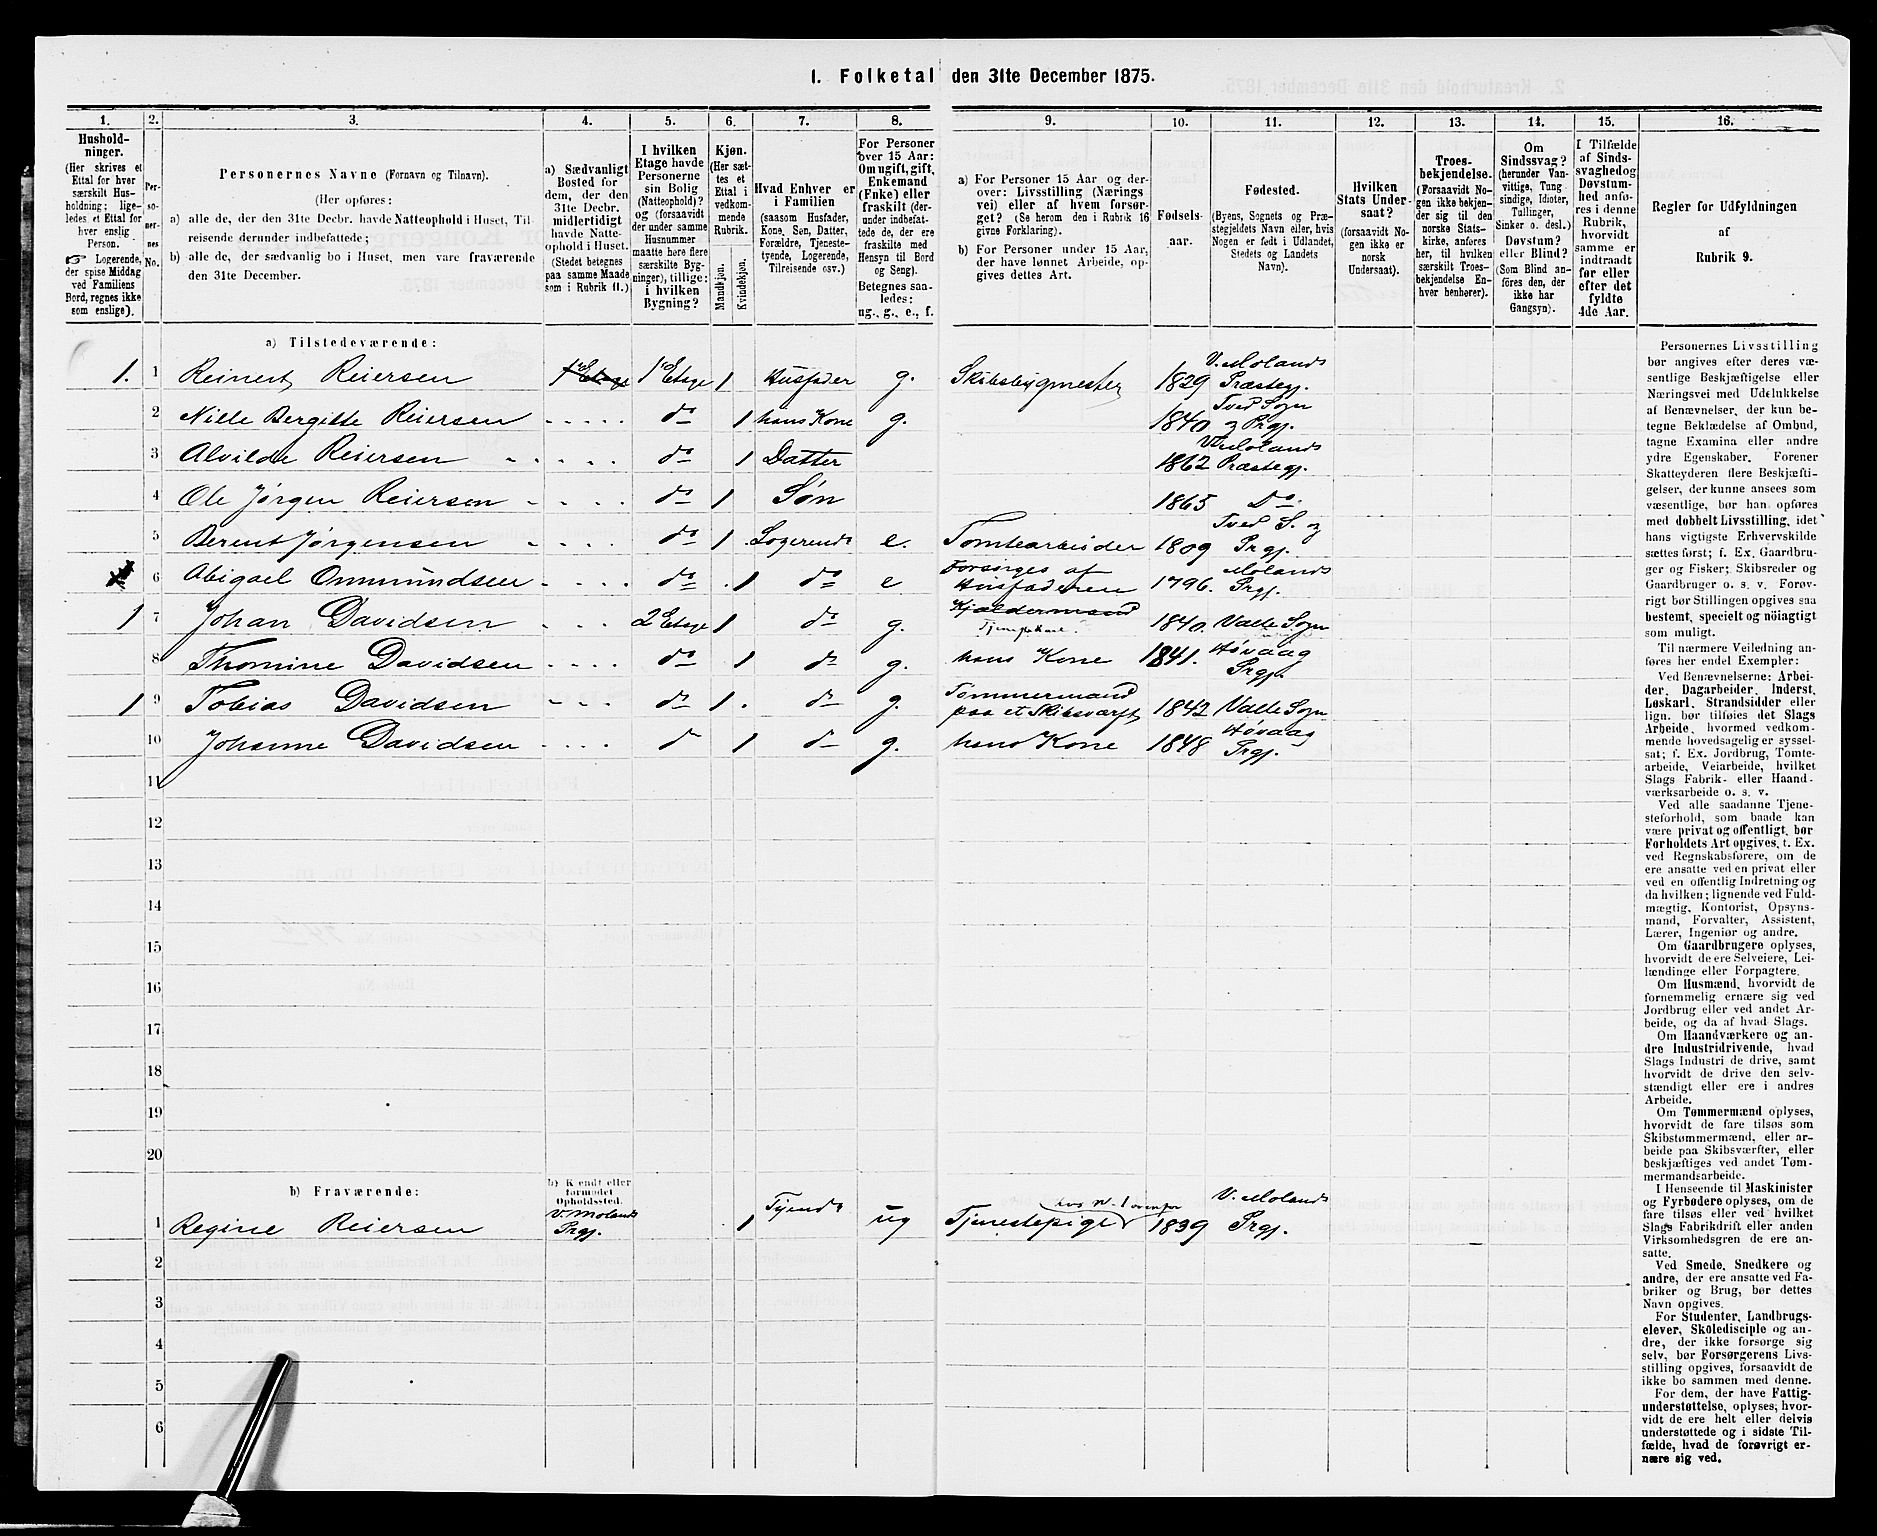 1. Folketal den 31te December 1875.
1. 2. 3. 4. 5. 6. 7. 8. 9. 10. 11. 12. 13. 14. 15. 16.
Hushold-
ninger.
(Her skrives et
Ettal for hver
særskilt Hus-
holdning; lige-
ledes et Ettal for
hver enslig
Person.
☞ Logerende,
der spise Middag
ved Familiens
Bord, regnes ikke
som enslige).
Per-
so-
ner-
nes
No.
Personernes Navne (Fornavn og Tilnavn).
(Her opføres:
a) alle de, der den 31te Decbr. havde Natteophold i Huset, Til-
reisende derunder indbefattede;
b) alle de, der sædvanlig bo i Huset, men vare fraværende
den 31te December.
a) Sædvanligt
Bosted for
dem, der den
31te Decbr.
midlertidigt
havde Natte-
ophold i Huset.
(Stedet betegnes
paa samme Maade
som i Rubrik 11.)
I hvilken
Etage havde
Personerne
sin Bolig
(Natteophold)?
og (forsaavidt
der under samme
Husnummer
maatte høre flere
særskilte Byg-
ninger), tillige:
i hvilken
Bygning?
Kjøn.
(Her sæt-
tes et
Ettal i
vedkom-
mende
Rubrik.
Mandkjøn.
Kvindekjøn.
Hvad Enhver er
i Familien
(saasom Husfader,
Kone, Søn, Datter,
Forældre, Tjeneste-
tyende, Logerende,
Tilreisende osv.)
For Personer
over 15 Aar:
Om ugift, gift,
Enkemand
(Enke) eller
fraskilt (der-
under indbefat-
tede de, der ere
fraskilte med
Hensyn til Bord
og Seng).
Betegnes saa-
ledes:
ug., g., e., f.
a) For Personer 15 Aar og der-
over: Livsstilling (Nærings
vei) eller af hvem forsør-
get? (Se herom den i Rubrik 16
givne Forklaring).
b) For Personer under 15 Aar,
der have lønnet Arbeide, op-
gives dettes Art.
Fødsels-
aar.
Fødested.
(Byens, Sognets og Præ-
stegjeldets Navn eller, hvis
Nogen er født i Udlandet,
Stedets og Landets
Navn).
Hvilken
Stats Under-
saat?
(forsaavidt No-
gen ikke er
norsk
Undersaat).
Troes-
bekjendelse.
(Forsaavidt No-
gen ikke bekjen-
der sig til den
norske Stats-
kirke, anføres
her, til hvilken
særskilt Troes-
bekjendelse En-
hver henhører).
Om
Sindssvag?
(herunder Van-
vittige, Tung
sindige, Idioter,
Tullinger,
Sinker o. desl.)
Døvstum?
eller Blind?
(Som Blind an-
føres den, der
ikke har
Gangsyn).
I Tilfælde
af Sinds-
svaghed og
Døvstum-
hed anfø-
res i denne
Rubrik,
hvorvidt
samme er
indtraadt
før eller
efter det
fyldte
4de Aar.
Regler for Udfyldningen
af
Rubrik 9.
a) Tilstedeværende:
1. 1 Reinert Reiersen 1ste Etage 1ste Etage 1 Husfader g. Skibsbygmester 1829 V. Molands Præstegj.
2 Nille Bergitte Reiersen do 1 hans Kone g. 1840 Tved Sogn og Prgj.
3 Alvilde Reiersen do 1 Datter 1862 V. Molands Præstegj.
4 Ole Jørgen Reiersen do 1 Søn 1865 Do.
5 Berent Jørgensen do 1 Logerende e. Tomtearbeider 1809 Tved S. og Prgj.
6 Abigael Ommundsen do 1 do e Forsørges af Husfaderen 1796. Molands Prgj.
1 7 Johan Davidsen 2 Etage 1 do g. Kjældermand 1840. Valle Sogn
8 Thomine Davidsen do 1 do g. hans Kone 1841. Høvaag Prgj.
1 9 Tobias Davidsen do 1 do g. Tømmermand paa et Skibsværft 1842 Valle Sogn
10 Johanne Davidsen d 1 do g. hans Kone 1848 Høvaag Prgj.
11
12
13
14
15
16
17
18
19
20
b) Fraværende:
b) Kjendt eller
formodet
Opholdssted.
1 Regine Reiersen V. Molands Prgj. 1 Tjende ug Tjenestepige 1839 V. Molands Prgj.
2
3
4
5
6
Personernes Livsstilling
bør angives efter deres væ-
sentlige Beskjæftigelse eller
Næringsvei med Udelukkelse
af Benævnelser, der kun be-
tegne Beklædelse af Ombud,
tagne Examina eller andre
ydre Egenskaber. Forener
Skatteyderen flere Beskjæfti-
gelser, der kunne ansees som
væsentlige, bør han opføres
med dobbelt Livsstilling, idet
hans vigtigste Erhvervskilde
sættes først; f. Ex. Gaardbru-
ger og Fisker; Skibsreder og
Gaardbruger o. s. v. Forøv-
rigt bør Stillingen opgives saa
bestemt, specielt og nöiagtigt
som muligt.
Til nærmere Veiledning an-
føres her endel Exempler:
Ved Benævnelserne: Arbei-
der, Dagarbeider, Inderst,
Løskarl, Strandsidder eller
lign. bør tilføies det Slags
Arbeide, hvormed vedkom-
mende hovedsagelig er syssel-
sat; f. Ex. Jordbrug, Tomte-
arbeide, Veiarbeide, hvilket
Slags Fabrik- eller Haand-
værksarbeide o. s. v.
Ved alle saadanne Tjene-
steforhold, som baade kan
være privat og offentligt, bør
Forholdets Art opgives, t. Ex.
ved Regnskabsførere, om de
ere ansatte ved en privat eller
ved en offentlig Indretning og
da hvilken; lignende ved Fuld-
mægtig, Kontorist, Opsyns-
mand, Forvalter, Assistent,
Lærer, Ingeniør og andre.
Om Gaardbrugere oplyses,
hvorvidt de ere Selveiere, Lei-
lændinge eller Forpagtere.
Om Husmænd, hvorvidt de
fornemmelig ernære sig ved
Jordbrug eller ved andet Ar-
beide, og da af hvad Slags.
Om Haandværkere og an-
dre Industridrivende, hvad
Slags Industri de drive, samt
hvorvidt de drive den selv-
stændigt eller ere i andres
Arbeide.
Om Tømmermænd oplyses,
hvorvidt de fare tilsøs som
Skibstømmermænd, eller ar-
beide paa Skibsværfter, eller
beskjæftiges ved andet Tøm-
mermandsarbeide.
I Henseende til Maskinister
og Fyrbødere oplyses, om de
fare tilsøs eller ved hvilket
Slags Fabrikdrift eller anden
Virksomhedsgren de ere an-
satte.
Ved Smede, Snedkere og
andre, der ere ansatte ved Fa-
briker og Brug, bør dettes
Navn opgives.
For Studenter, Landbrugs-
elever, Skoledisciple og an-
dre, der ikke forsørge sig
selv, bør Forsørgerens Livs-
stilling opgives, forsaavidt de
ikke bo sammen med denne.
For dem, der have Fattig-
understøttelse, oplyses, hvor-
vidt de ere helt eller delvis
understøttede og i sidste Til-
fælde, hvad de forøvrigt er-
nære sig ved.